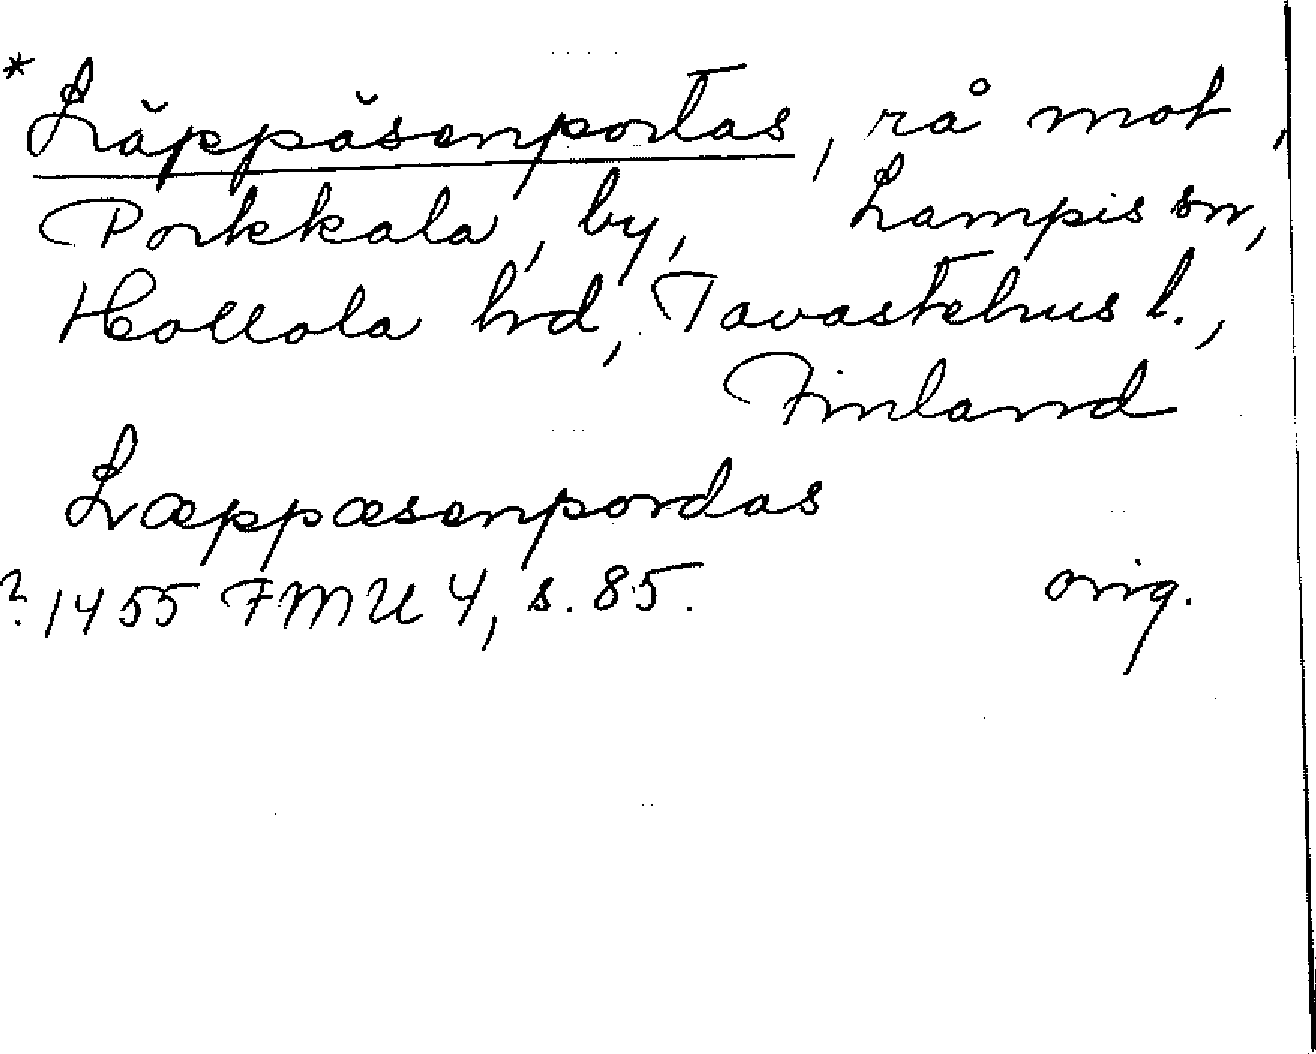 * Läppäsenportas, rå mot,
Porkkala, by, Lampis sn,
Hollola hrd, Tavastehus l.,
Finland
Læppæsenpordas
? 1455 FMU 4, s. 85. orig.